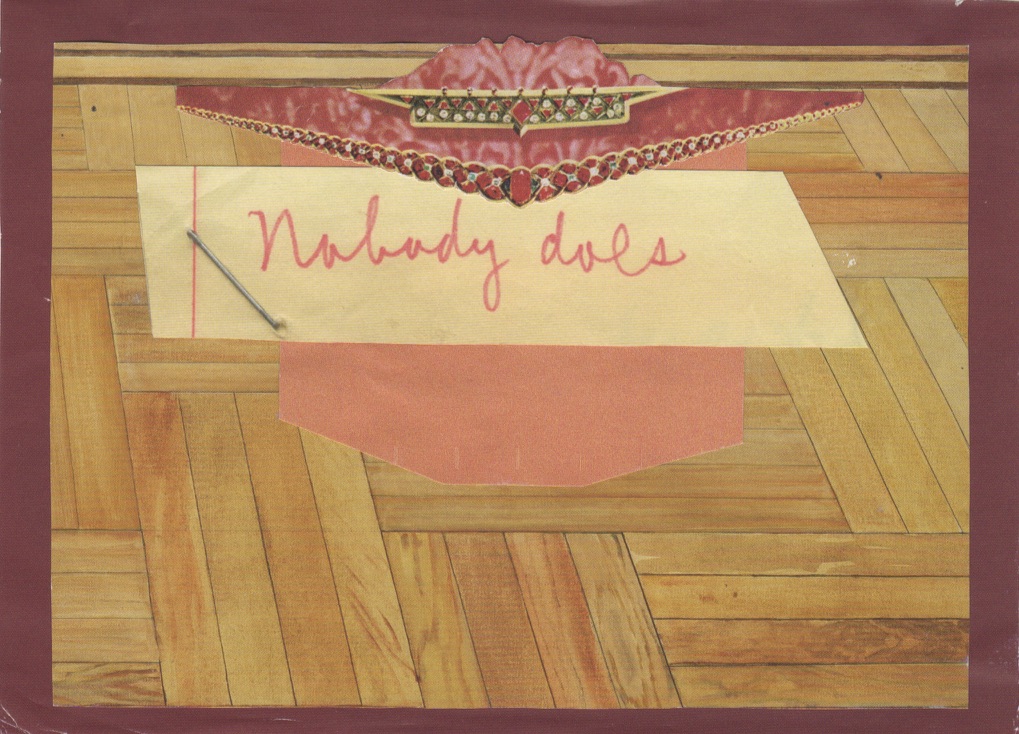 Nobody does